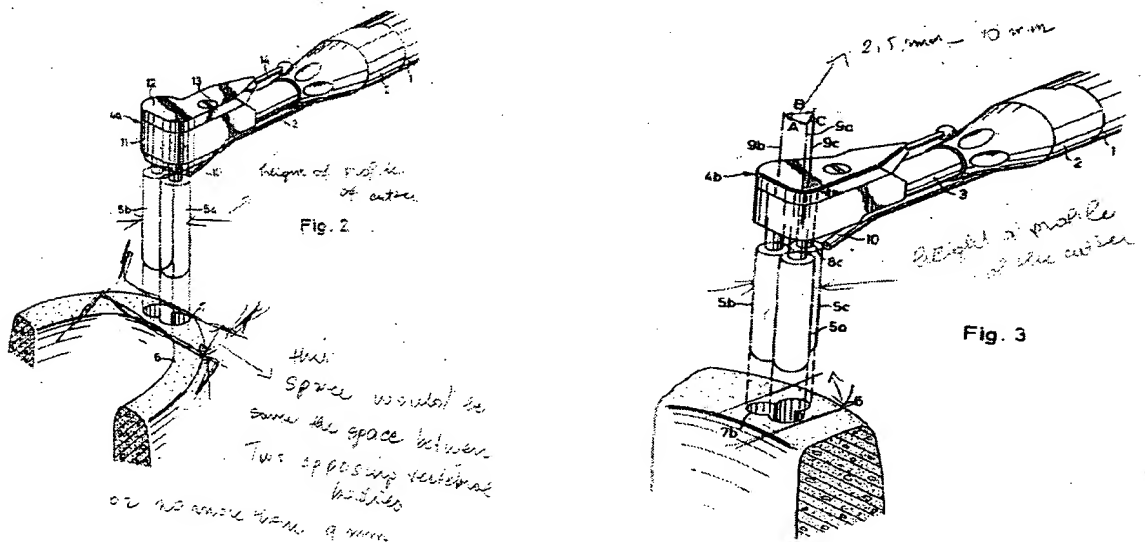 12
13
14
1
2
4a
11
2
height of profile
of cutter
5b
5a
Fig. 2
6
this
space would be
same the space between
Two opposing vertebral
bodies
or no more than 9 mm
2,5 mm – 10 mm
B
A
C
9a
9b
9c
4b
1
2
3
10
8c
height of profile
of the cutter
5b
5c
5a
Fig. 3
6
7b